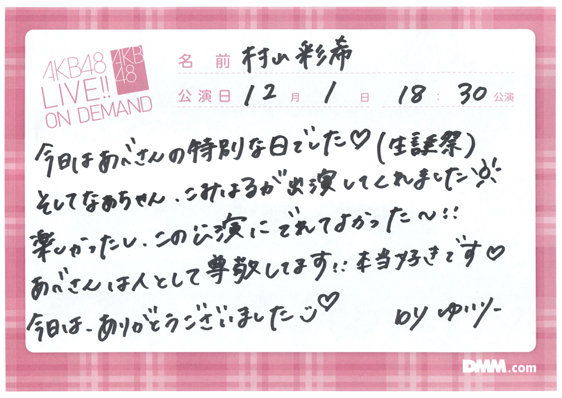 AKB48
LIVE!!
ON DEMAND
AKB
48
名前 村山彩希
公演日 12月1日 18:30公演
今日はあべさんの特別な日でした♡(生誕祭)
そしてなぁちゃん、こみはるが出演してくれました
楽しかったし、この公演にでれてよかった〜!!
あべさんは人として尊敬してます!! 本当好きです♡
今日は、ありがとうございました♡
by ゆいりー
DMM.com